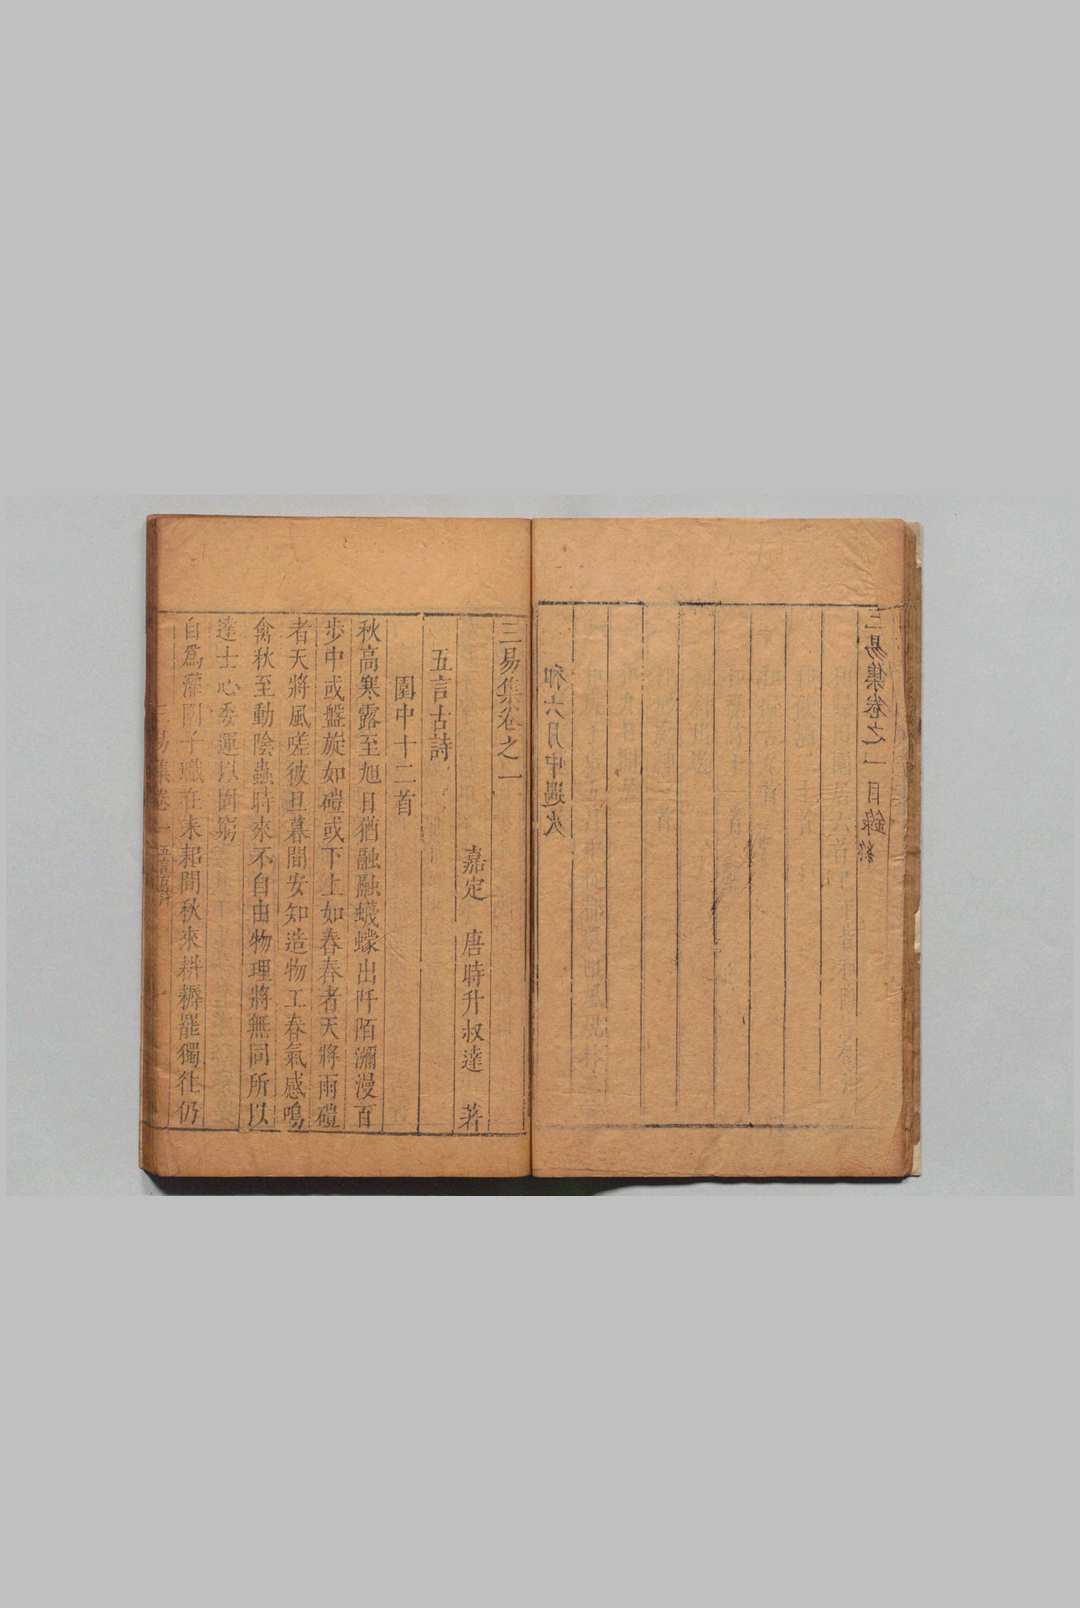 三易集卷之一目錄終
和六月中遇火
三易集卷之一
嘉定 唐時升叔達 著
五言古詩
園中十二首
秋高寒露至旭日猶融融蠛蠓出阡陌瀰漫百
步中或盤旋如磑或下上如舂舂者天將雨磑
者天將風嗟彼旦暮間安知造物工春氣感鳴
禽秋至動陰蟲時來不自由物理將無同所以
達士心委運以固窮
自為灌園子職在耒耜間秋來耕耨罷獨往仍